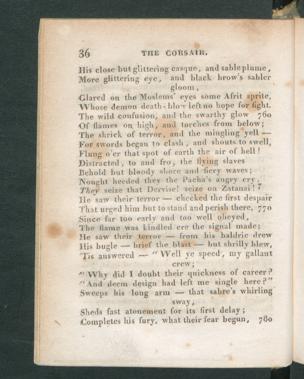 36 THE CORSAIR.
His close but glittering casque, and sable plume,
More glittering eye, and black brow's sabler
gloom,
Glared on the Moslems' eyes some Afrit sprite,
Whose demon death-blow left no hope for fight.
The wild confusion, and the swarthy glow 760
Of flames on high, and torches from below;
The shriek of terror, and the mingling yell —
For swords began to clash, and shouts to swell,
Flung o'er that spot of earth the air of hell!
Distracted, to and fro, the flying slaves
Behold but bloody shore and fiery waves;
Nought heeded they the Pacha's angry cry,
They seize that Dervise! seize on Zatanai! 7
He saw their terror — checked the first despair
That urged him but to stand and perish there, 770
Since far too early and too well obeyed,
The flame was kindled ere the signal made;
He saw their terror — from his baldric drew
His bugle — brief the blast — but shrilly blew,
'Tis answered — "Well ye speed, my gallant
crew;
"Why did I doubt their quickness of career?
"And deem design had left me single here?"
Sweeps his long arm — that sabre's whirling
sway,
Sheds fast atonement for its first delay;
Completes his fury, what their fear begun, 780